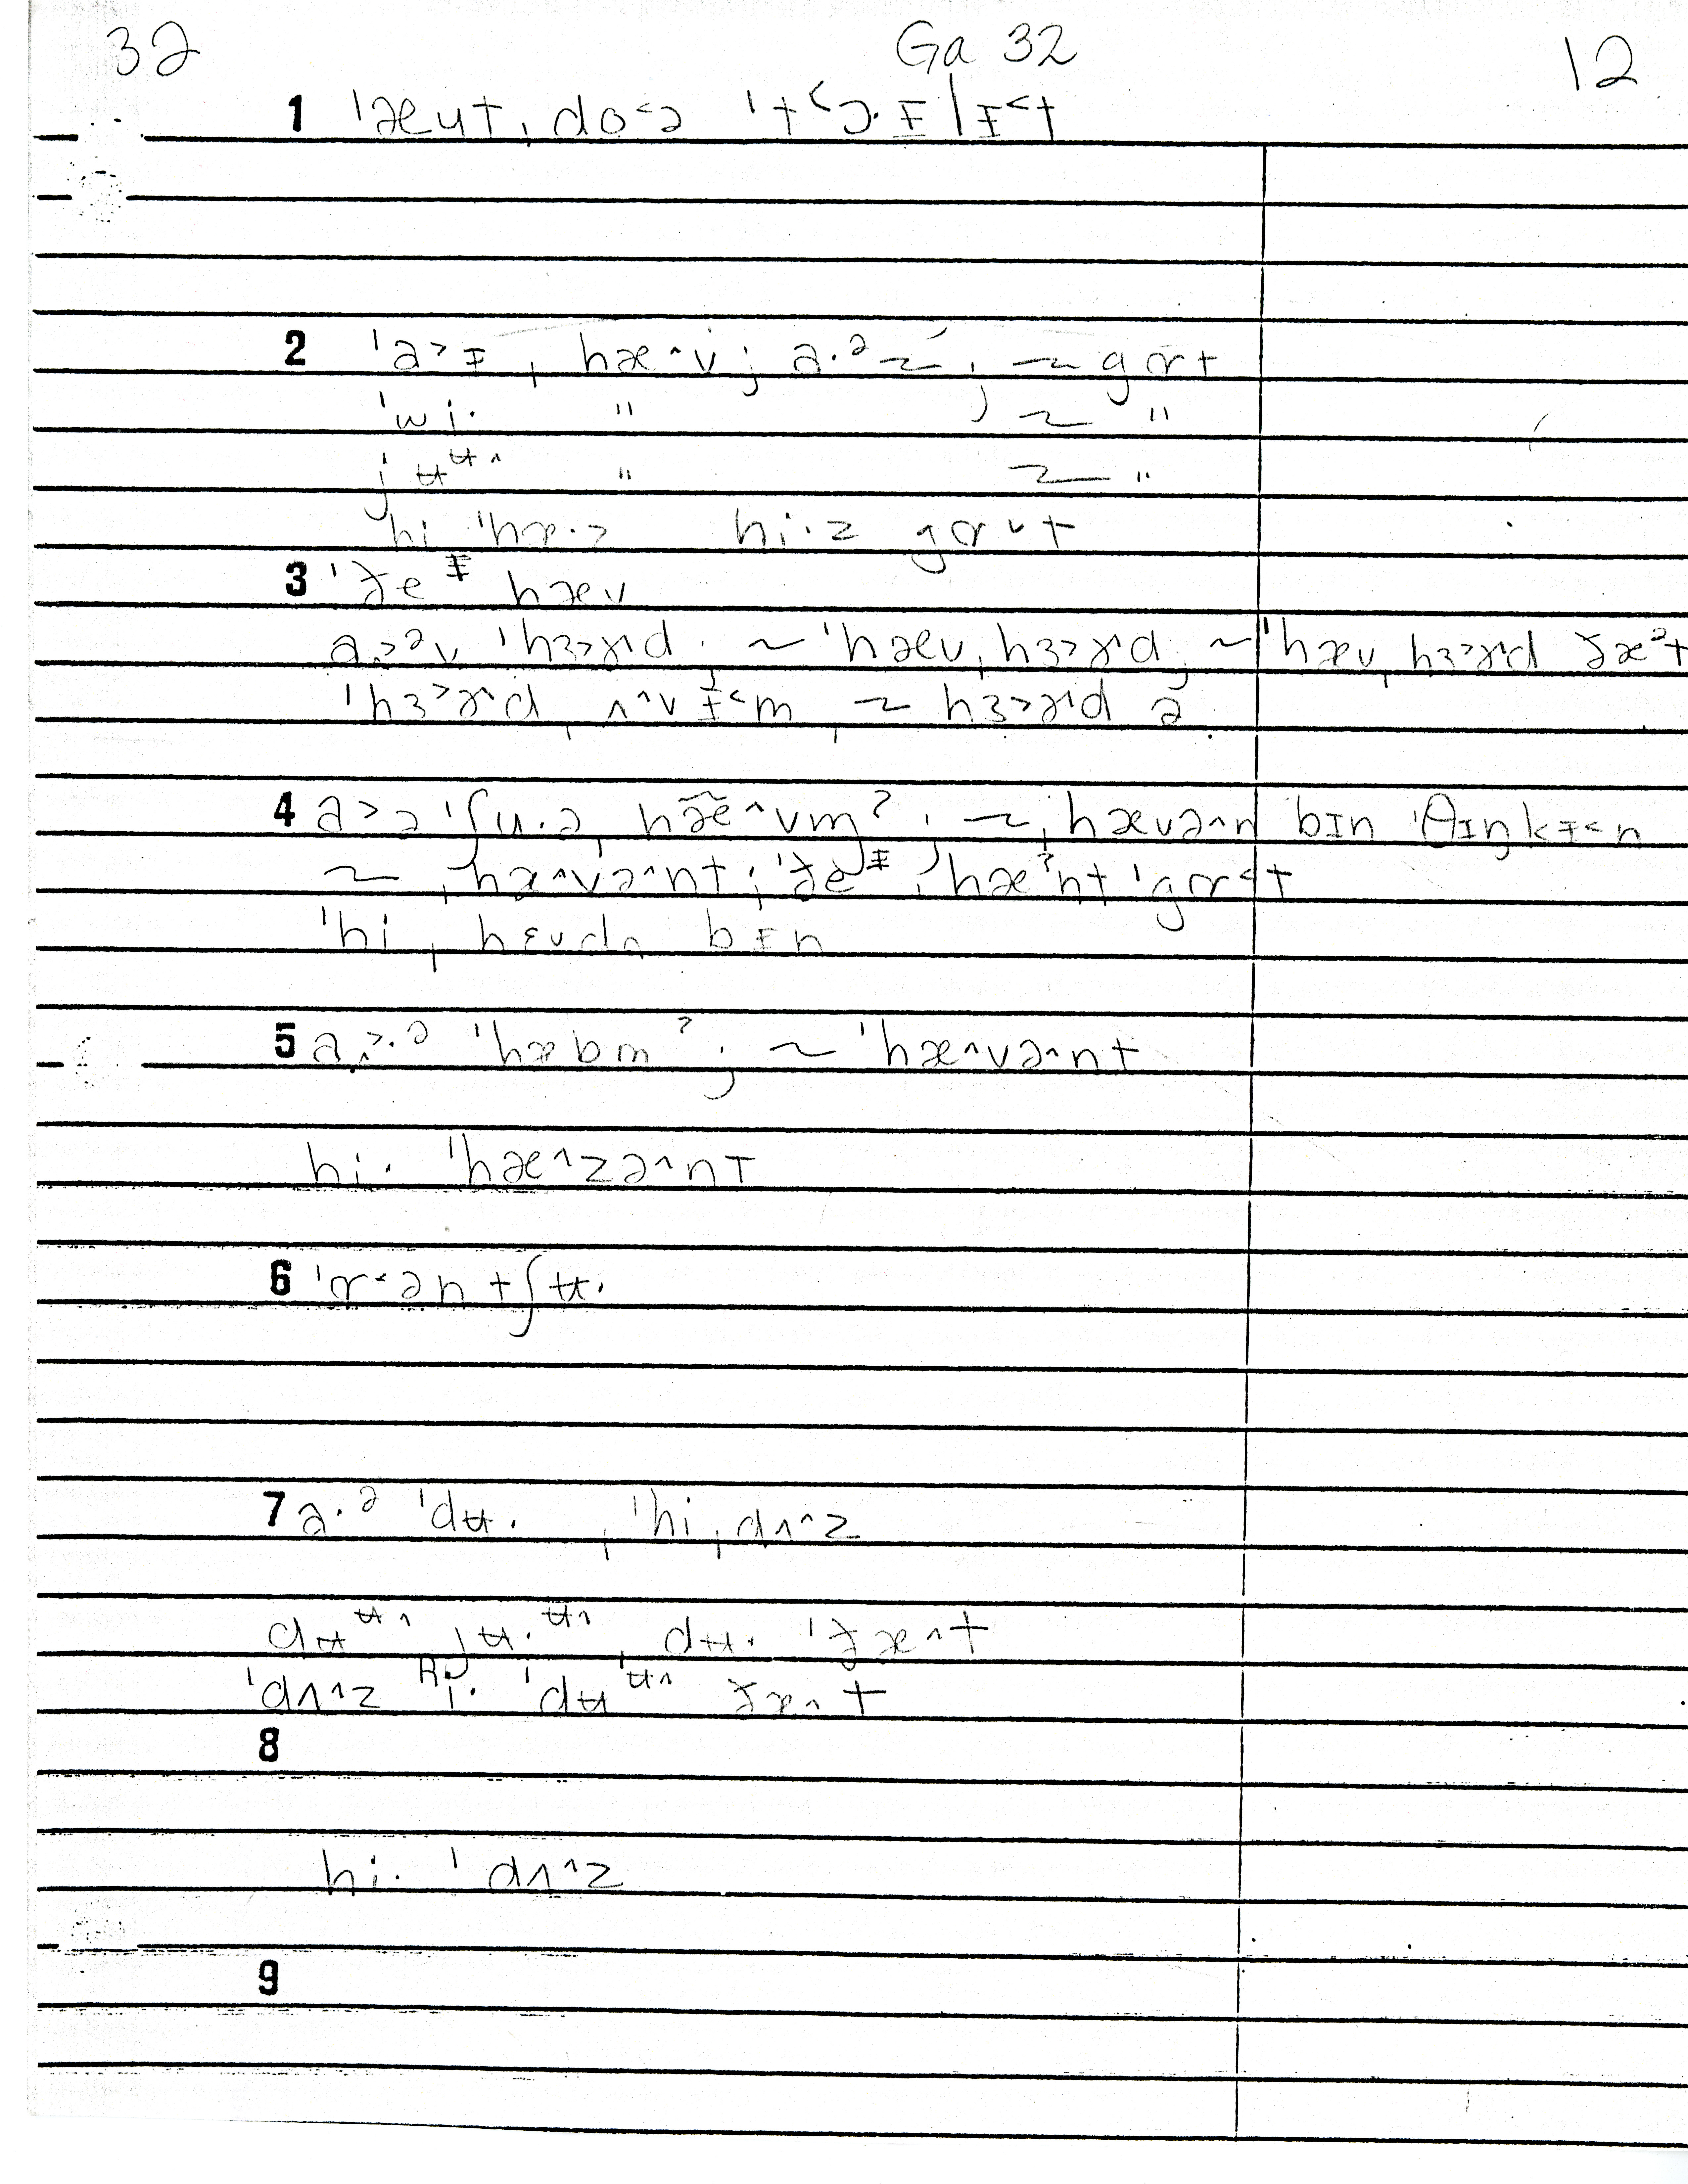 32 Ga 32 12
1 ˈæʉt ˌdo˂ə ˈt˂ɔ·ᵻlᵻ˂t
2 ˈa˃ᵻ ˌhæ^v ; a·ᵊ ~ ; ~ gɑt
ˈwi· " ; ~ "
jʉᶶ^ " ~ "
hi ˈhæ·z hi·z gɑ^t
3 ˈðeᵻ hæv
a˃ᵊv ˈhɜ˃ɚd · ~ ˈhæv ˌhɜ˃ɚd ; ~ ˈhæv ˌhɜ˃ɚd ðæˀt
ˈhɜ˃ɚd ˌʌ^v ᵻ˂m ; ~ ˌhɜ˃ɚd ə
4 a˃ə ˈʃu·ə ˌhæ̃^vmˀ ; ~ ˌhævə^n bɪn ˈθɪŋkᵻ˂n
~ ˌhæ^və^nt ; ˈðeᵻ ˌhæˀnt ˈgɑ˂t
ˈhi ˌhɛvdn bᵻn
5 a˃·ᵊ ˈhæbmˀ ; ~ ˈhæ^və^nt
hi· ˈhæ^zə^nt
6 ˈɑ˂ən tʃʉ·
7 a·ᵊ ˈdʉ· , ˈhi ˌdʌ^z
dʉᶶ^ jʉ·ᶶ^ ˌdʉ· ˈðæ^t
ˈdʌ^z hi· ˈdʉᶶ^ ðæ^t
8
hi· ˈdʌ^z
9